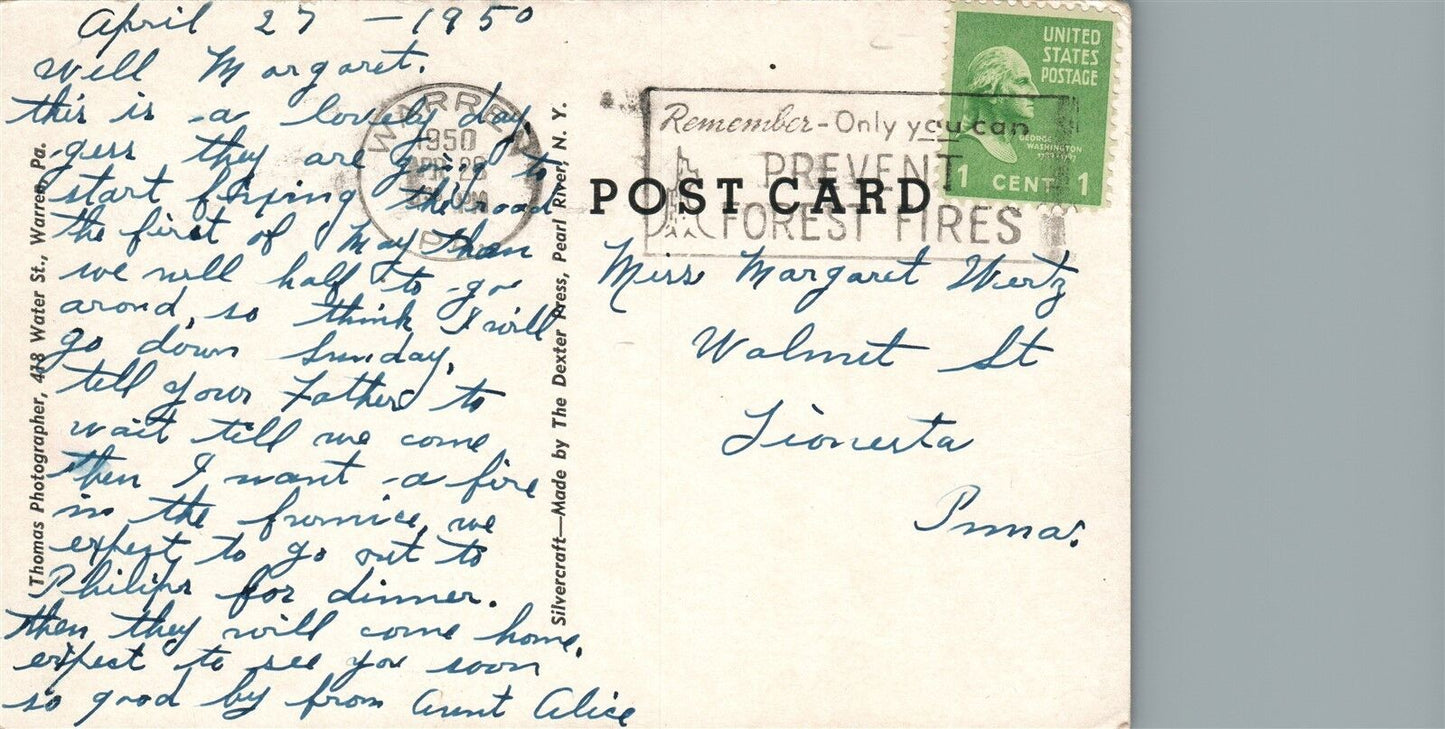 April 27 - 1950
well Margaret.
this is a lovely day,
gess they are going to
start fixing the road
the first of May then
we will half to go
arond, so think I will
go down Sunday,
tell your Father to
wait till we come
then I want a fire
in the
expest to go out to
Philips for dinner.
then they will come home.
expest to see you soon
so good by from Aunt Alice
(Thomas Photographer, 418 Water St., Warren, Pa.
Silvercraft—Made by The Dexter Press, Pearl River, N. Y.
WARREN
1950
APR 28
PM
PA.
Remember - Only you can
PREVENT
FOREST FIRES
UNITED
STATES
POSTAGE
GEORGE
WASHINGTON
1 CENT 1
POST CARD
Miss Margaret Wertz
Walnut St
Tionesta
Penna.